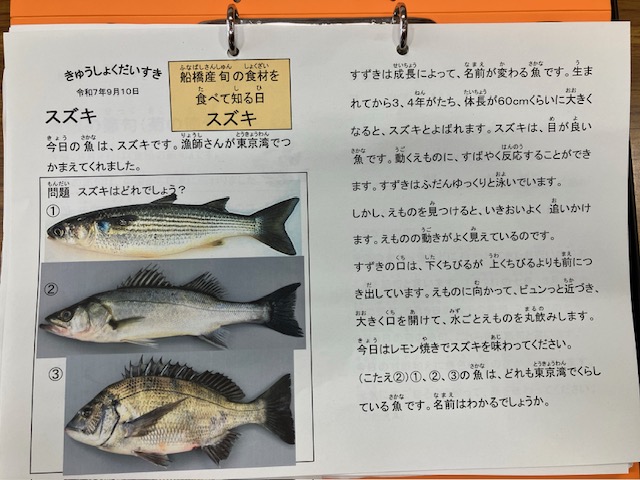 きゅうしょくだいすき
令和7年9月10日
船橋産旬の食材を
食べて知る日
スズキ
スズキ
今日の魚は、スズキです。漁師さんが東京湾でつ
かまえてくれました。
問題 スズキはどれでしょう?
①
②
③
すずきは成長によって、名前が変わる魚です。生ま
れてから3、4年がたち、体長が60cmくらいに大きく
なると、スズキとよばれます。スズキは、目が良い
魚です。動くえものに、すばやく反応することができ
ます。すずきはふだんゆっくりと泳いでいます。
しかし、えものを見つけると、いきおいよく 追いかけ
ます。えものの動きがよく見えているのです。
すずきの口は、下くちびるが 上くちびるよりも前につ
き出しています。えものに向かって、ビュンっと近づき、
大きく口を開けて、水ごとえものを丸飲みします。
今日はレモン焼きでスズキを味わってください。
(こたえ②)①、②、③の魚は、どれも東京湾でくらし
ている魚です。名前はわかるでしょうか。